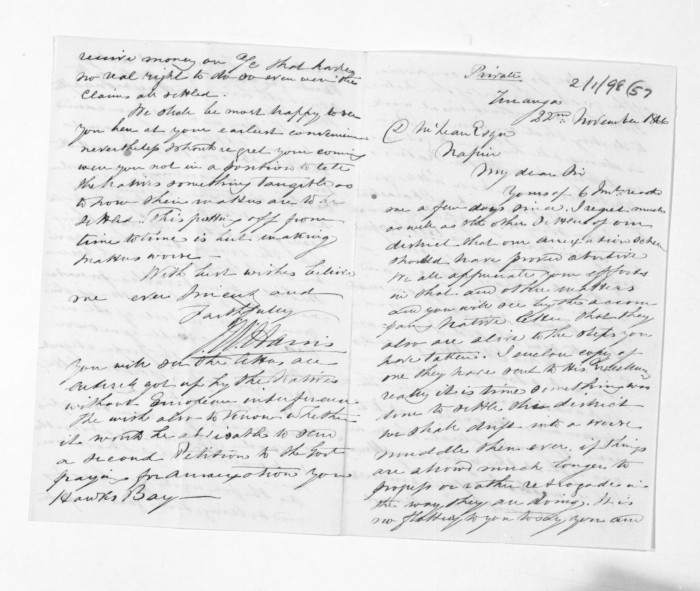 Private
2/1/98 (57
Turanga
22nd November 186
D McLean Esqre
Napier
My dear Sir
Yours of 6 Inst reached
me a few days since. I regret much
as well as the other Settlers of our
district that our annexation scheme
should have proved abortive
We all appreciate your efforts
in that and other matters
and you will see by the accom
pany Native letter that they
also are alive to the steps you
have taken. I enclose copy of
one they have sent to His Excellency
really it is time something was
done to settle this district
we shall drift into a worse
muddle than ever, if things
are allowed much longer to
progress or rather retrograde in
the way they are doing. It is
no flattery to you to say you are
receive money on a/c that have
no real right to do so even were the
claims all settled.
We shall be most happy to see
you here at your earliest convenience
nevertheless should regret your coming
were you not in a position to tell
the Natives something tangible as
to how their matters are to be
settled. This putting off from
time to time is but making
matters worse –
With best wishes believe
me ever sincerely and
faithfully
J W Harris
You will see the letters are
entirely got up by the Natives
without European interference
The wish also to know whether
it would be advisable to send
a second Petition to the Govt
praying for annexation you
Hawkes Bay —